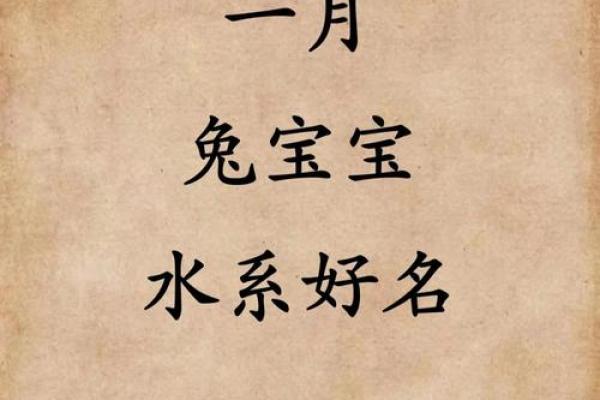 一月
兔宝宝
水系好名